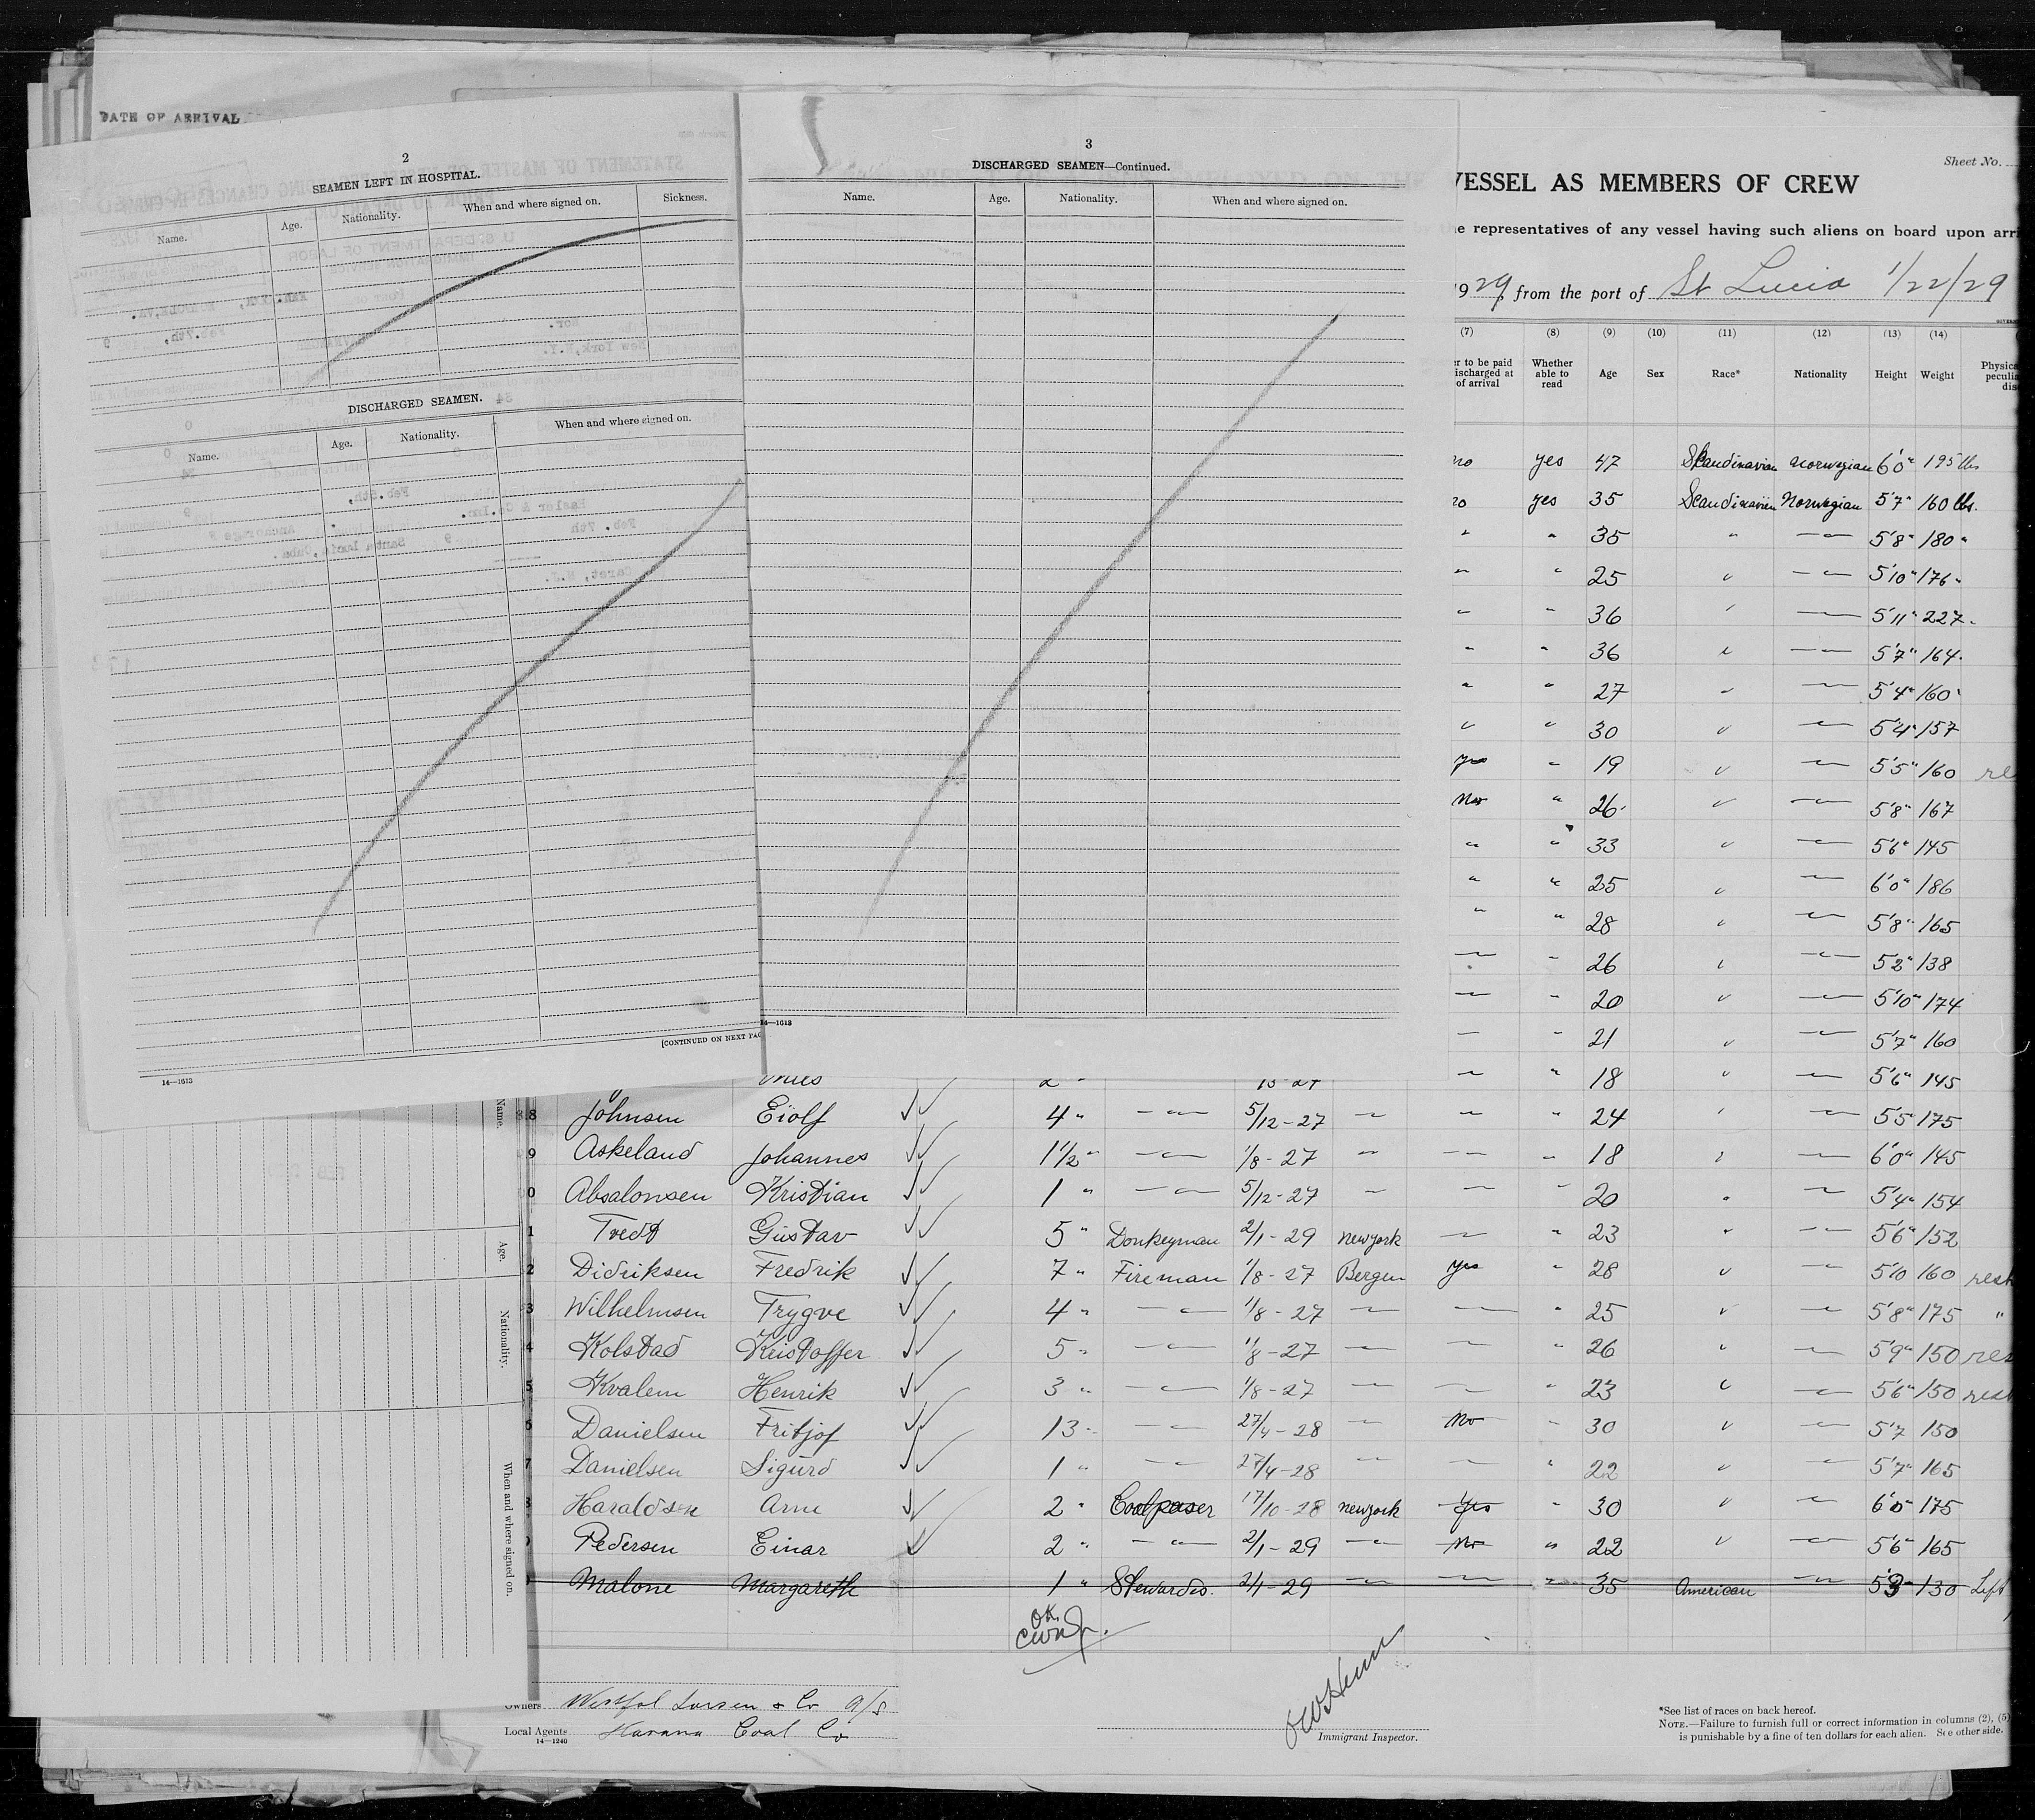 DATE OF ARRIVAL
2
SEAMEN LEFT IN HOSPITAL.
Name. Age. Nationality. When and where signed on. Sickness.
DISCHARGED SEAMEN.
Name. Age. Nationality. When and where signed on.
[CONTINUED ON NEXT PAG
14—1613
3
DISCHARGED SEAMEN—Continued.
Name. Age. Nationality. When and where signed on.
14—1613
Sheet No.
VESSEL AS MEMBERS OF CREW
e representatives of any vessel having such aliens on board upon arri
1929, from the port of St Lucia 1/22/29
(7) (8) (9) (10) (11) (12) (13) (14)
er to be paid Whether Physica
ischarged at able to Age Sex Race* Nationality Height Weight peculia
of arrival read dis
no yes 47 Skandinavian Norwegian 6'0" 195 lbs
no yes 35 Scandinavien Norwegian 5'7" 160 lbs.
" " 35 " —"— 5'8" 180 "
" " 25 " —"— 5'10" 176 "
" " 36 " —"— 5'11" 227 "
" " 36 " —"— 5'7" 164 "
" " 27 " —"— 5'4" 160 "
" " 30 " —"— 5'4" 157
yes " 19 " —"— 5'5" 160 re
No " 26 " —"— 5'8" 167
" " 33 " —"— 5'6" 145
" " 25 " —"— 6'0" 186
" " 28 " —"— 5'8" 165
—"— " 26 " —"— 5'2" 138
—"— " 20 " —"— 5'10" 174
— " 21 " —"— 5'7" 160
2 " " " 18 " —"— 5'6" 145
8 Johnsen Eiolf 4 " —"— 5/12-27 —"— —"— " 24 " —"— 5'5 175
9 Askeland Johannes 1 1/2 " —"— 1/8-27 —"— —"— " 18 " —"— 6'0" 145
0 Absalonsen Kristian 1 " —"— 5/12-27 — —"— " 20 " —"— 5'4" 154
1 Tvedt Gustav 5 " Donkeyman 2/1-29 newyork —"— " 23 " —"— 5'6" 152
2 Didriksen Fredrik 7 " Fireman 1/8-27 Bergen yes " 28 " —"— 5'10 160 resh
3 Wilhelmsen Trygve 4 " —"— 1/8-27 —"— —"— " 25 " —"— 5'8" 175 "
4 Kolstad Kristoffer 5 " —"— 1/8-27 —"— —"— " 26 " —"— 5'9" 150 res
5 Kvalem Henrik 3 " —"— 1/8-27 —"— —"— " 23 " —"— 5'6" 150 resh
6 Danielsen Fritjof 13 " —"— 27/4-28 —"— No " 30 " —"— 5'7 150
7 Danielsen Sigurd 1 " —"— 27/4-28 —"— —"— " 22 " —"— 5'7" 165
8 Haraldsen Arne 2 " Coalpaser 17/10-28 newyork Yes " 30 " —"— 6'0" 175
Pedersen Einar 2 " —"— 2/1-29 —"— No " 22 " —"— 5'6" 165
Malone Margareth 1 " Stewardes. 2/1-29 —"— —"— " 35 American —"— 5'3" 130 Left
OK
Name.
Age.
Nationality.
When and where signed on.
Owners Westfal Larsen & Co A/S
Local Agents Havana Coal Co
14—1240
Immigrant Inspector.
*See list of races on back hereof.
NOTE.—Failure to furnish full or correct information in columns (2), (5)
is punishable by a fine of ten dollars for each alien. See other side.